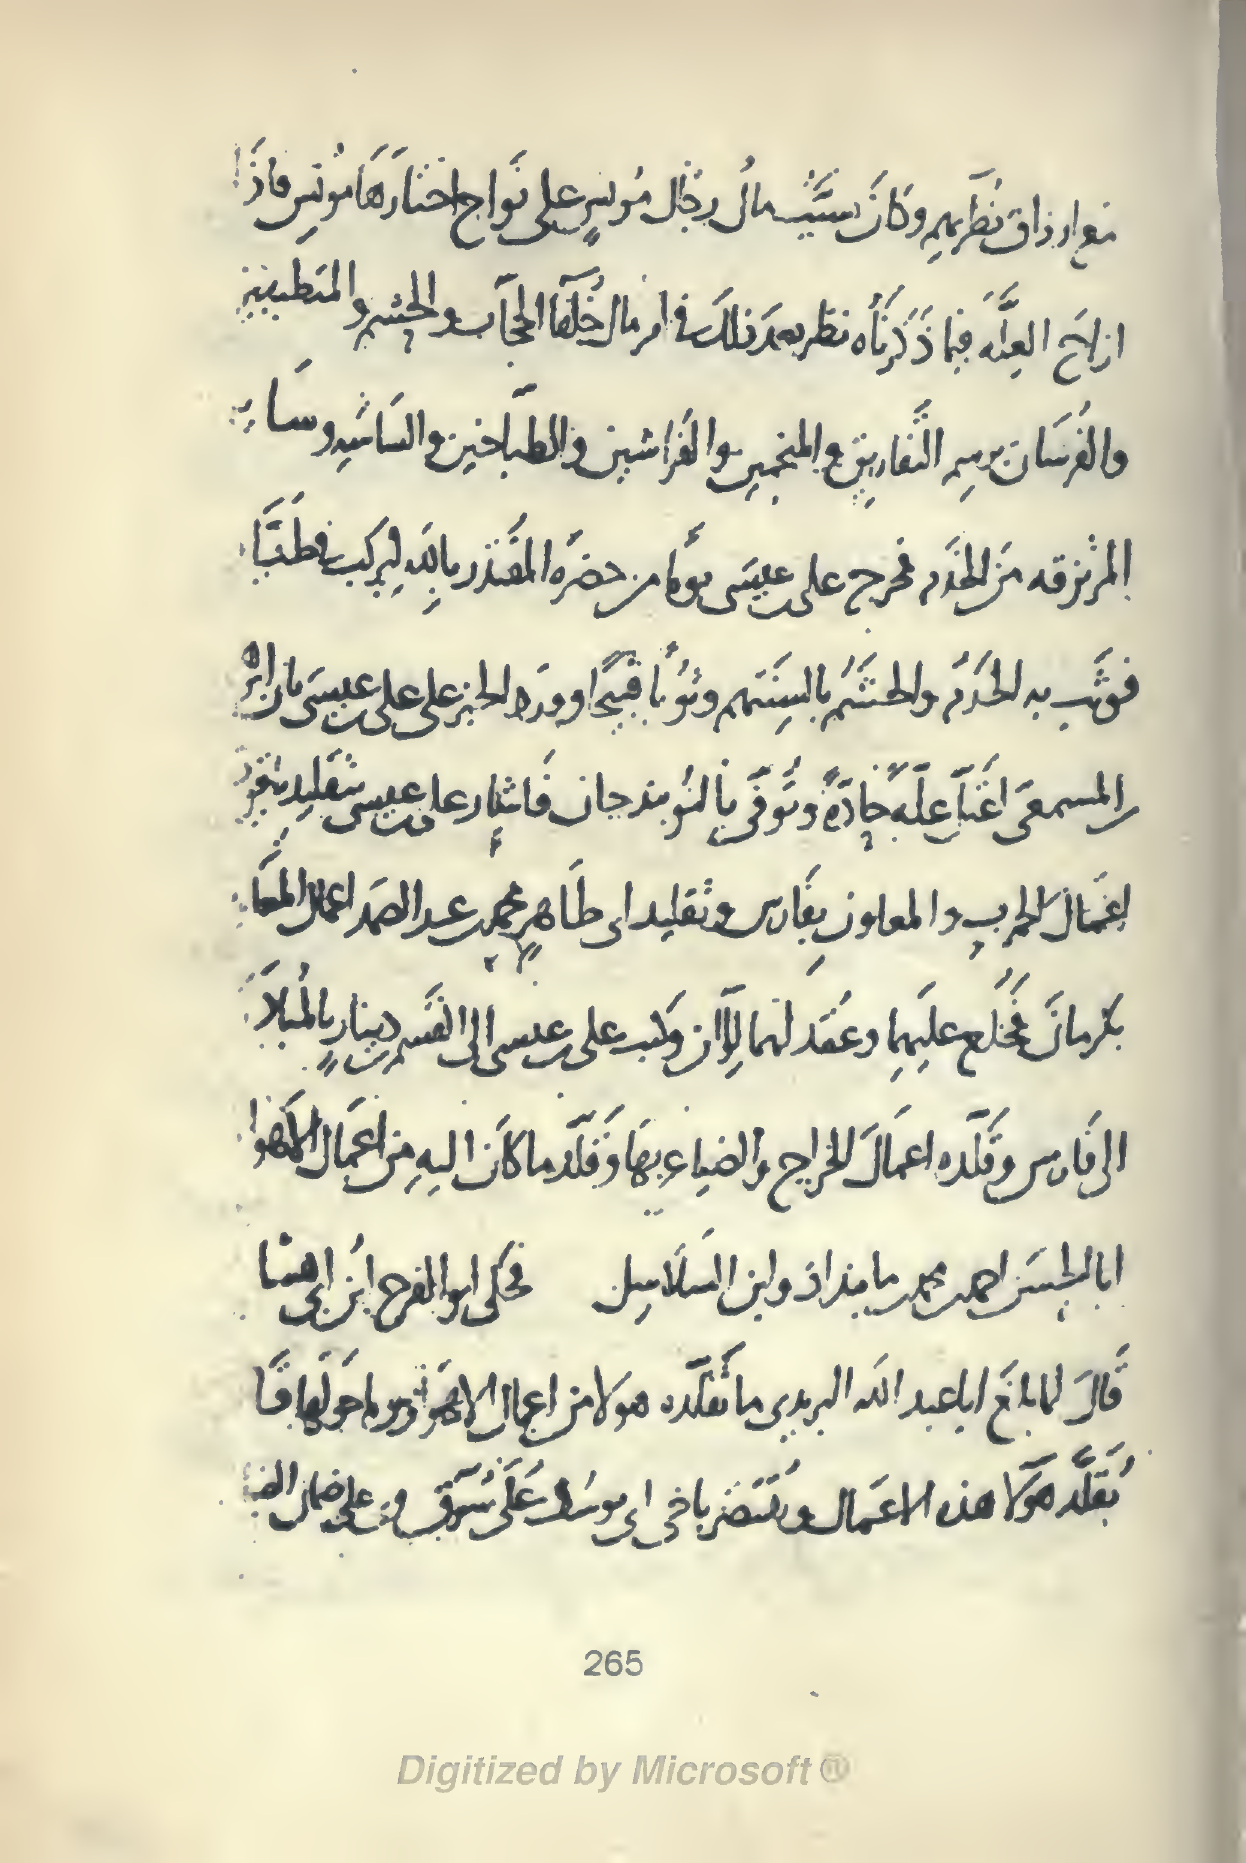 ارزاق نظرائهم وكَانَ سبَّب مالُ رجَال مُونسٍ على نَواحٍ اختارَهَا مُونس فاذَا
ازاحَ العِلَّه فيما ذَكَرنَاه نظر بعدَ ذلكَ في امر مال خُلَفا الحجَّاب والحشم والمتطببين
والفُرسَان برسِم التَّفاريق والمنجمين والفَرَّاشين والطبَّاخين والسَاسَه وسَاير
المرتزقه مَن الخدَم فخرج على عيسَى يومًا من حضرَه المقتَدر باللَه ليركب في طَيَّا
فوثَب به الخدَمُ والحشَمُ بالسِنَتهم وثوبًا قبيحًا وورَد الخبر على على عيسَى بان ابره
المسمعى اعتَلَّ علَّه حادَّةً وتُوفّى بالنُوبندجان فَاشار على عيسى بتقليد
اعمَال الحرب والمعاون بفَارس وتقليد ابى طَاهرٍ محمد عبد الصَمَد اعمال المعَا
بكرمانَ فخُلع عليهما وعُقدَ لهما لِوَاآن وكتب على عيسى الى القَسم دينارٍ بالمُبادَ
الى فَارس وقَلّده اعمَالَ الخراج والضياع بهَا وقَلّد ما كَان اليهِ من اعمَال الاهوا
ابا الحسَن احمد محمد مابنداذ وابن السَلَاسِل فحكى ابو الفرج ابن ابى هشا
قَالَ لما بلغَ ابا عبد اللَه البريدى ما تقلّده هولا من اعمال الاهواز وما حَولَها قَا
يُقلَّد هَولا هذه الاعمَال ويُقتَصَر باخى ابى يوسُف عَلَى سُرَّق وبى على ضمان
265
Digitized by Microsoft ®